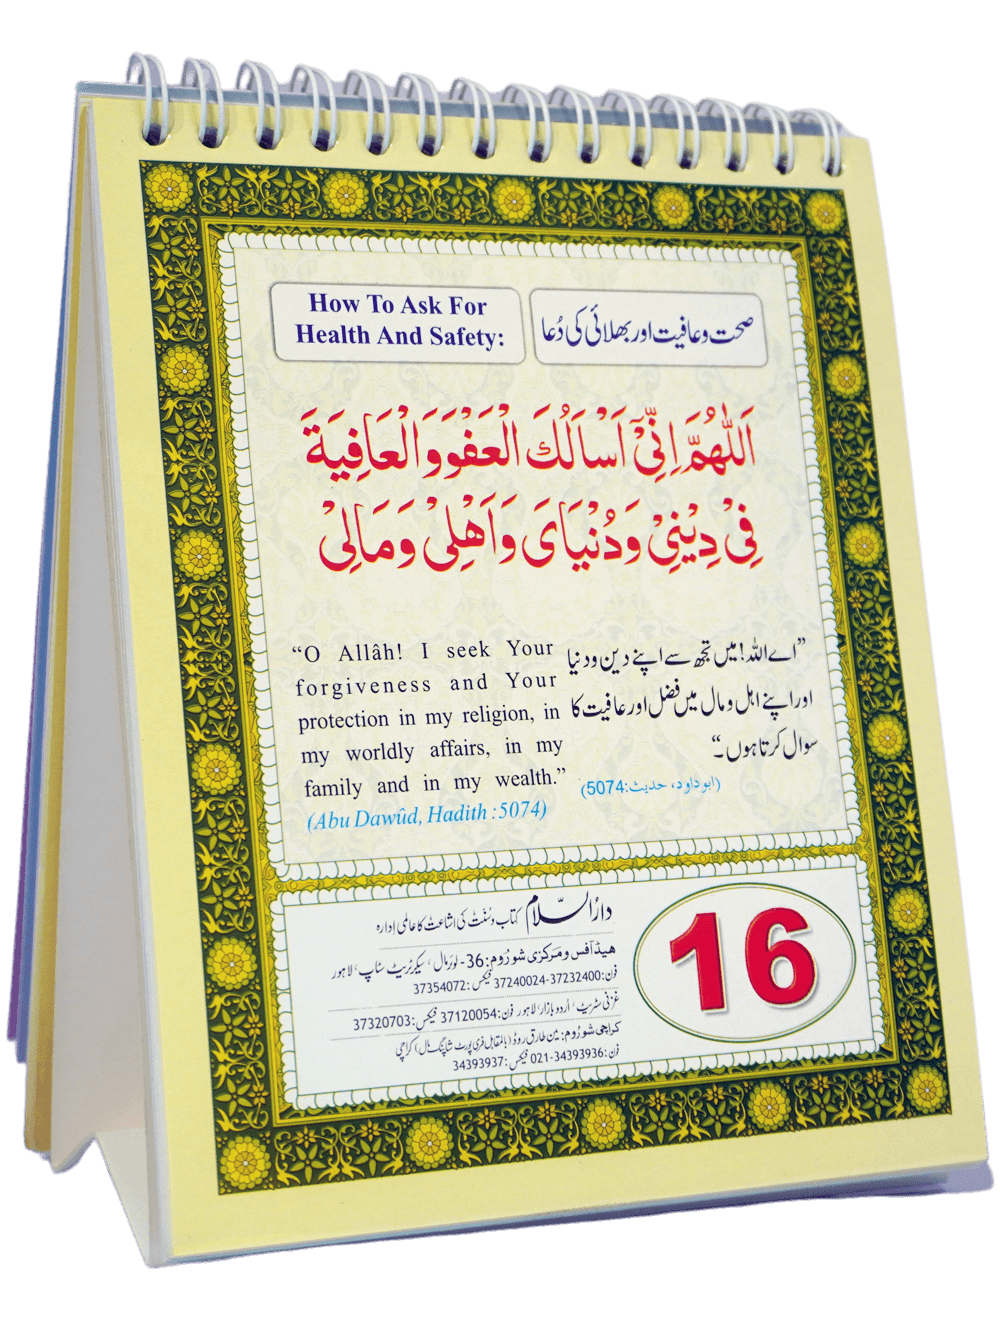 How To Ask For
Health And Safety:
صحت و عافیت اور بھلائی کی دُعا
اَللّٰهُمَّ اِنِّیْٓ اَسْاَلُكَ الْعَفْوَ وَالْعَافِيَةَ
فِیْ دِيْنِیْ وَدُنْيَایَ وَاَهْلِیْ وَمَالِیْ
“O Allâh! I seek Your
forgiveness and Your
protection in my religion, in
my worldly affairs, in my
family and in my wealth.”
(Abu Dawûd, Hadith :5074)
”اے اللہ! میں تجھ سے اپنے دین و دنیا
اور اپنے اہل و مال میں فضل اور عافیت کا
سوال کرتا ہوں۔“
(ابو داود، حدیث:5074)
دارُالسّلام کتاب و سُنّت کی اشاعت کا عالمی اِدارہ
ھیڈ آفس و مرکزی شورُوم: 36- لورمال، سیکرٹریٹ سٹاپ، لاہور
فون:37232400-37240024 فیکس:37354072
غزنی سٹریٹ، اُردو بازار، لاہور فون:37120054 فیکس:37320703
کراچی شورُوم: مین طارق روڈ (بالمقابل فری پورٹ شاپنگ مال) کراچی
فون:34393936-021 فیکس:34393937
16